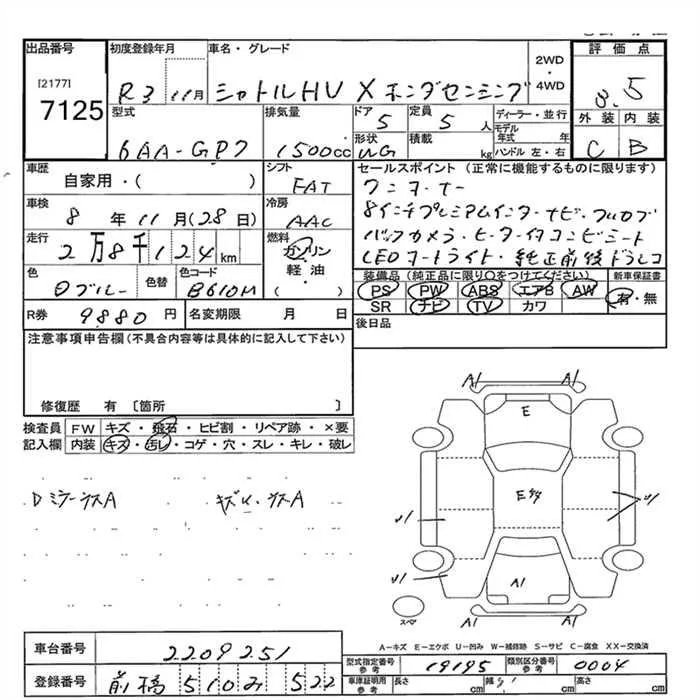 出品番号 初度登録年月 車名・グレード 評価点
[2177]
7125
R3 11月 シャトルHV X ホンダセンシング 2WD・4WD 3.5
型式 排気量 ドア 定員 ディーラー・並行 外装 内装
6AA-GP7 1500cc 5 5人 モデル年式 年 C B
形状 積載 kg ハンドル 左・右
WG
車歴 シフト セールスポイント (正常に機能するものに限ります)
自家用・( ) FAT ワンオーナー
車検 冷房 8インチプレミアムインターナビ・フルセグ
8年11月(28日) AAC バックカメラ・ヒーター付コンビシート
走行 燃料 LEDオートライト・純正前後ドラレコ
2万8千124km ガソリン
軽油・( )
色 色替 色コード 装備品 (純正品に限り○をつけてください) 新車保証書
Dブルー B610M PS PW ABS エアB AW 有・無
SR ナビ TV カワ
R券 9880円 名変期限 月 日 後日品
注意事項申告欄 (不具合内容等は具体的に記入して下さい)
修復歴 有 [箇所 ]
検査員 FW キズ・飛石・ヒビ割・リペア跡・×要
記入欄 内装 キズ・汚レ・コゲ・穴・スレ・キレ・破レ
A1 A1
E
DミラーカスA キズ 
E多
A1
スペア
A-キズ E-エクボ U-凹み W-補修跡 S-サビ C-腐食 XX-交換済
車台番号 2209251
型式指定番号 参考 19195 類別区分番号 参考 0004
登録番号 前橋 510 み 522
車庫証明用 参考 長さ cm 幅 cm 高さ cm